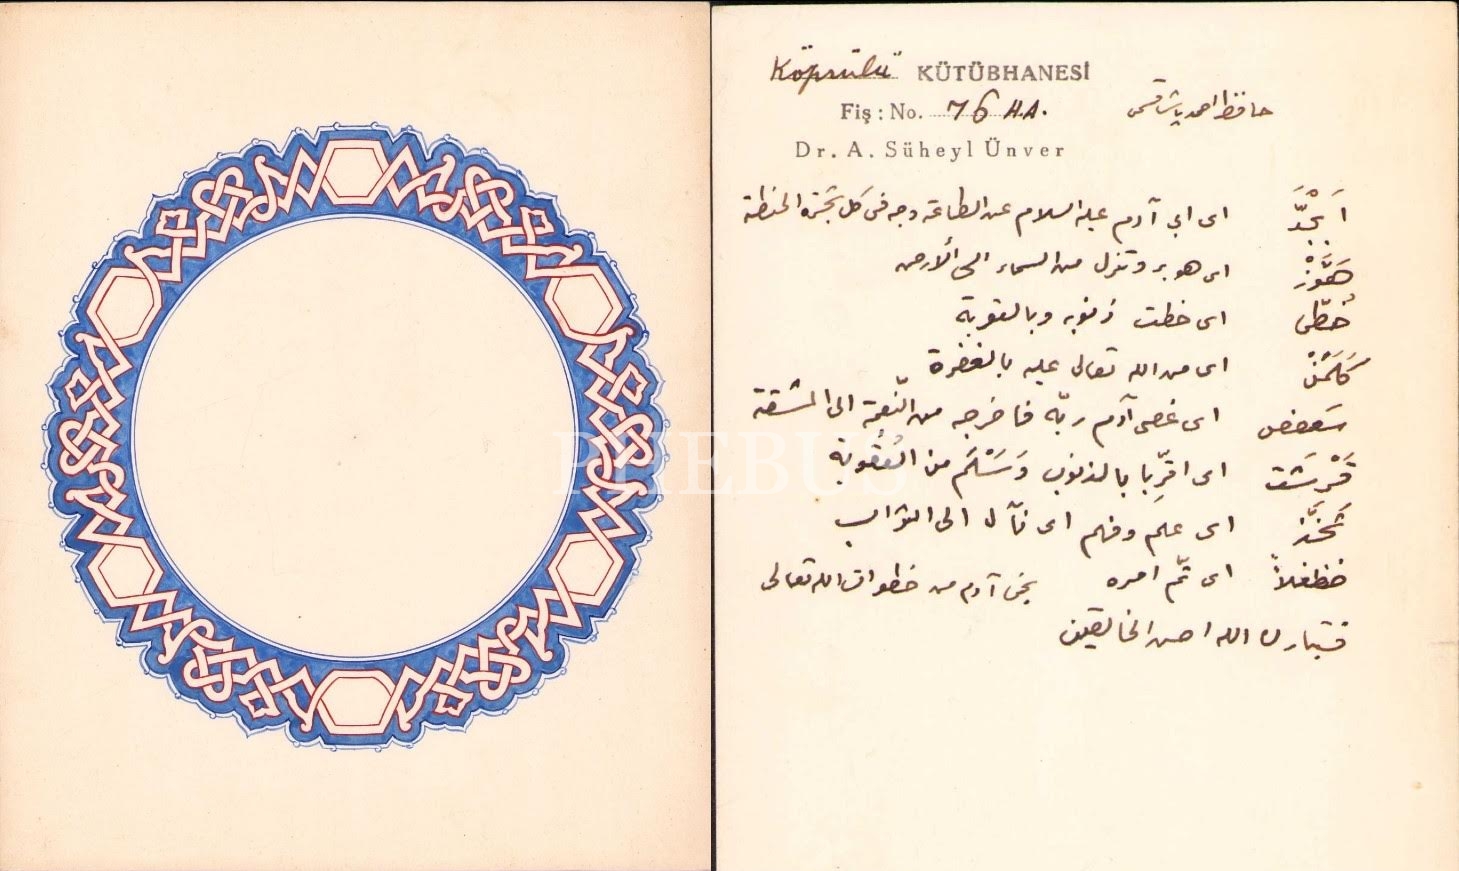 Köprülü KÜTÜBHANESİ
Fiş : No. 76 H.A.
حافظ احمد پاشا قسمى
Dr. A. Süheyl Ünver
اَبْجَدَّ اى ابى آدم عليه السلام عن الطاعة وجه فى كل الحنطة
هَوَّزْ اى هو بر و تنزل من السماء الى الأرض
حُطّى اى خطت ذنوبه وبالتوبة
كَلَمَنْ اى من الله تعالى عليه بالمغفرة
سَعفص اى عصى آدم ربّه فاخرجه من النّعمة الى المشقة
قَرْشَت اى اقرّبا بالذنوب وَسَلَم من العُقُوبة
ثَخّذْ اى علم وفهم اى نآل الى الثواب
ضظغلاً اى تمّ امره نجى آدم من خطوات الله تعالى
فتبارك الله احسن الخالقين
PHEBUS